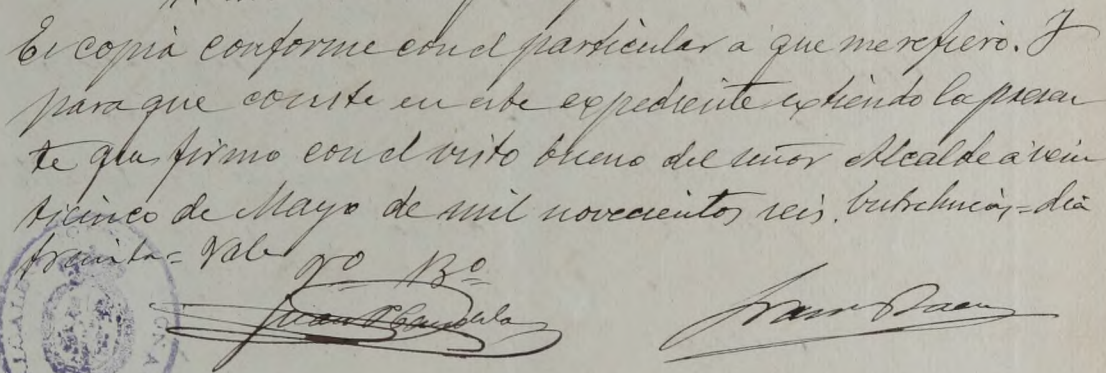 Es copia conforme con el particular a que me refiero. Y
para que conste en este expediente extiendo la presen
te que firmo con el visto bueno del señor Alcalde á vein
ticinco de Mayo de mil novecientos seis. Entrelineas=dia
treinta= Vale
Vº Bº
Juan